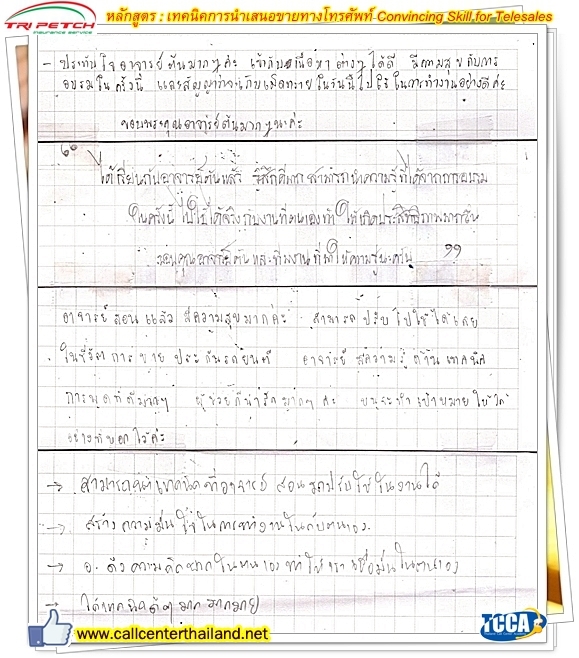 TRI PETCH
insurance service
หลักสูตร : เทคนิคการนำเสนอขายทางโทรศัพท์ Convincing Skill for Telesales
- ประทับใจอาจารย์ต้นมากๆค่ะ เข้ากับเนื้อหาต่างๆได้ดี มีความสุขกับการ
อบรมในครั้งนี้ และสัญญาว่าจะนำเนื้อหาภายในวันนี้ไปใช้ในการทำงานอย่างดีค่ะ
ขอบพระคุณอาจารย์ต้นมากๆนะค่ะ
“ ได้เรียนกับอาจารย์ต้นแล้ว รู้สึกดีมาก สามารถนำความรู้ที่ได้จากการอบรม
ในครั้งนี้ ไปใช้ได้จริงกับงานที่ตนเองทำ ให้เกิดประสิทธิภาพมากขึ้น
ขอบคุณอาจารย์ต้นและทีมงานที่ให้ความรู้นะครับ ”
อาจารย์สอนแล้ว มีความสุขมากค่ะ สามารถปรับไปใช้ได้เลย
ในชีวิตการขายประกันรถยนต์ อาจารย์มีความรู้ด้านเทคนิค
การพูดที่ดีมากๆ ผู้ช่วยก็น่ารักมากๆค่ะ หนูจะทำเป้าหมายให้ได้
อย่างที่บอกไว้ค่ะ
→ สามารถนำเทคนิคที่อาจารย์สอนมาปรับใช้ในงานได้
→ สร้างความมั่นใจในการทำงานให้กับตนเอง.
→ อ. ดึงความคิดจากในตนเอง ทำให้เราเชื่อมั่นในตนเอง
→ ได้เทคนิคดีๆมากมาย
www.callcenterthailand.net
TCCA